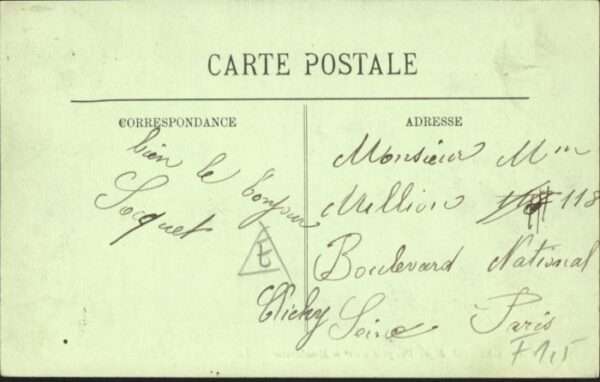 CARTE POSTALE
CORRESPONDANCE
ADRESSE
bien le bonjour
Socquet
Monsieur Mme
Million 118
Boulevard National
Clichy Seine Paris
F 1,5